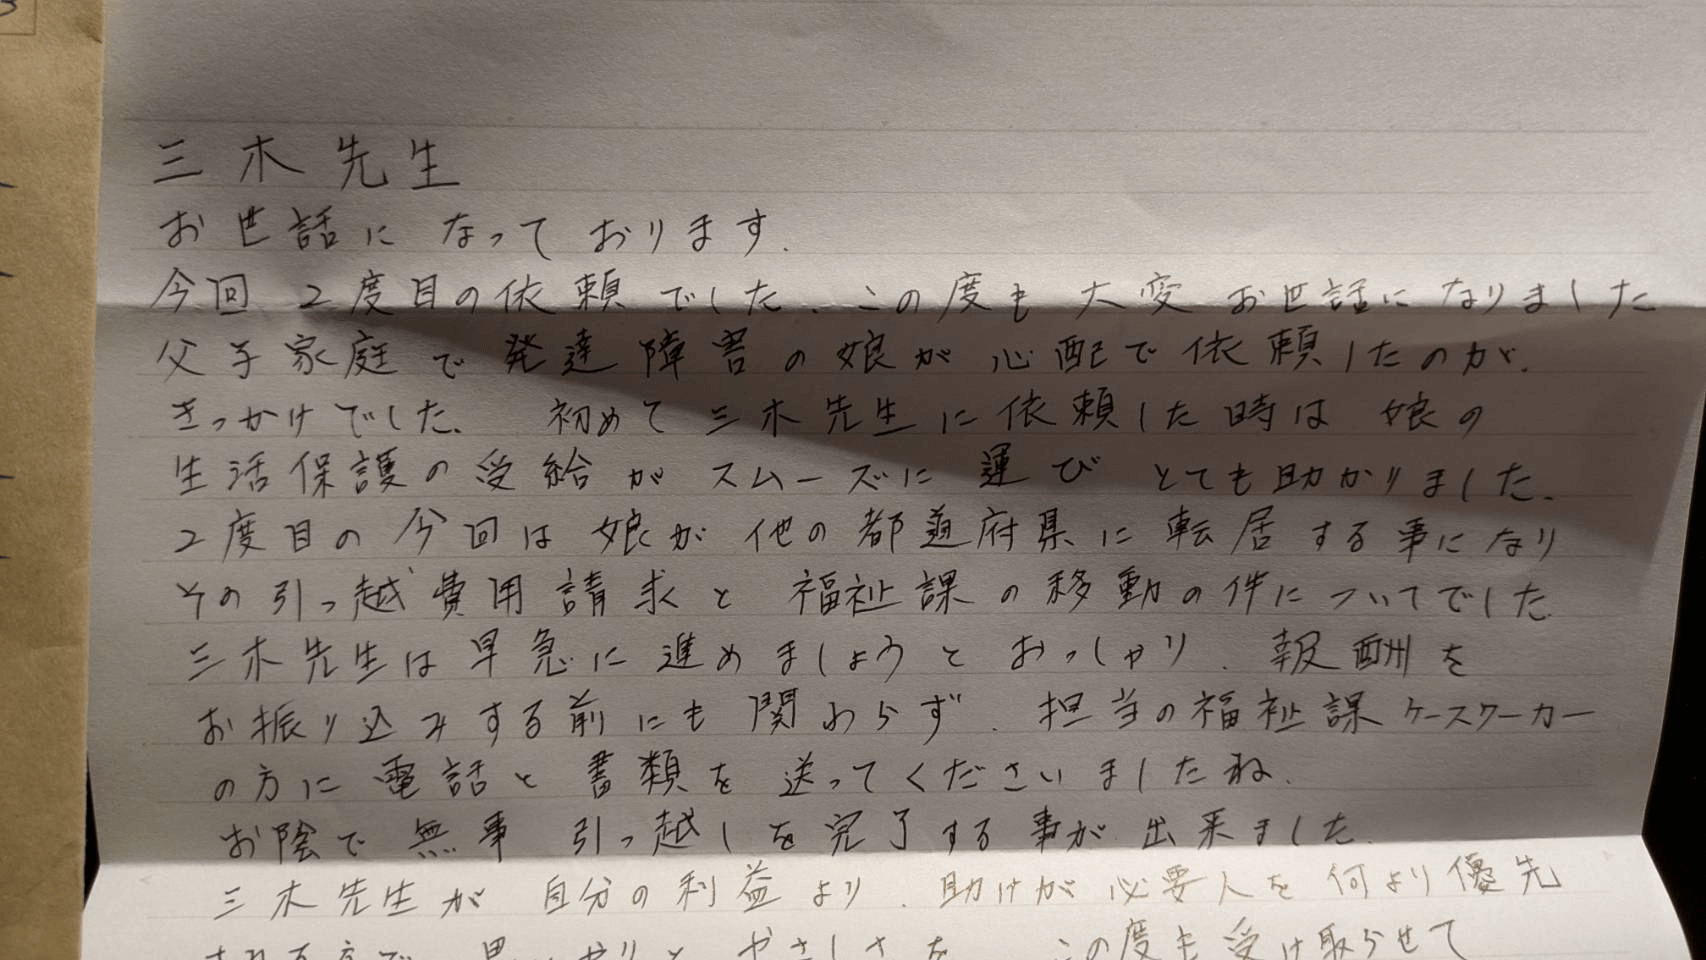 三木先生
お世話になっております.
今回 2度目の依頼でした、この度も 大変 お世話になりました
父子家庭で 発達障害の娘が心配で依頼したのが、
きっかけでした、 初めて 三木先生に依頼した時は 娘の
生活保護の受給がスムーズに運び とても助かりました、
2度目の今回は娘が他の都道府県に転居する事になり
その引っ越費用請求と 福祉課の移動の件についてでした
三木先生は早急に進めましょうとおっしゃり、報酬を
お振り込みする前にも関わらず、担当の福祉課ケースワーカー
の方に電話と書類を送ってくださいましたね.
お陰で無事 引っ越しを完了する事が出来ました.
三木先生が自分の利益より、助けが必要人を何より優先
される方で 思いやりと やさしさを この度も受け取らせて